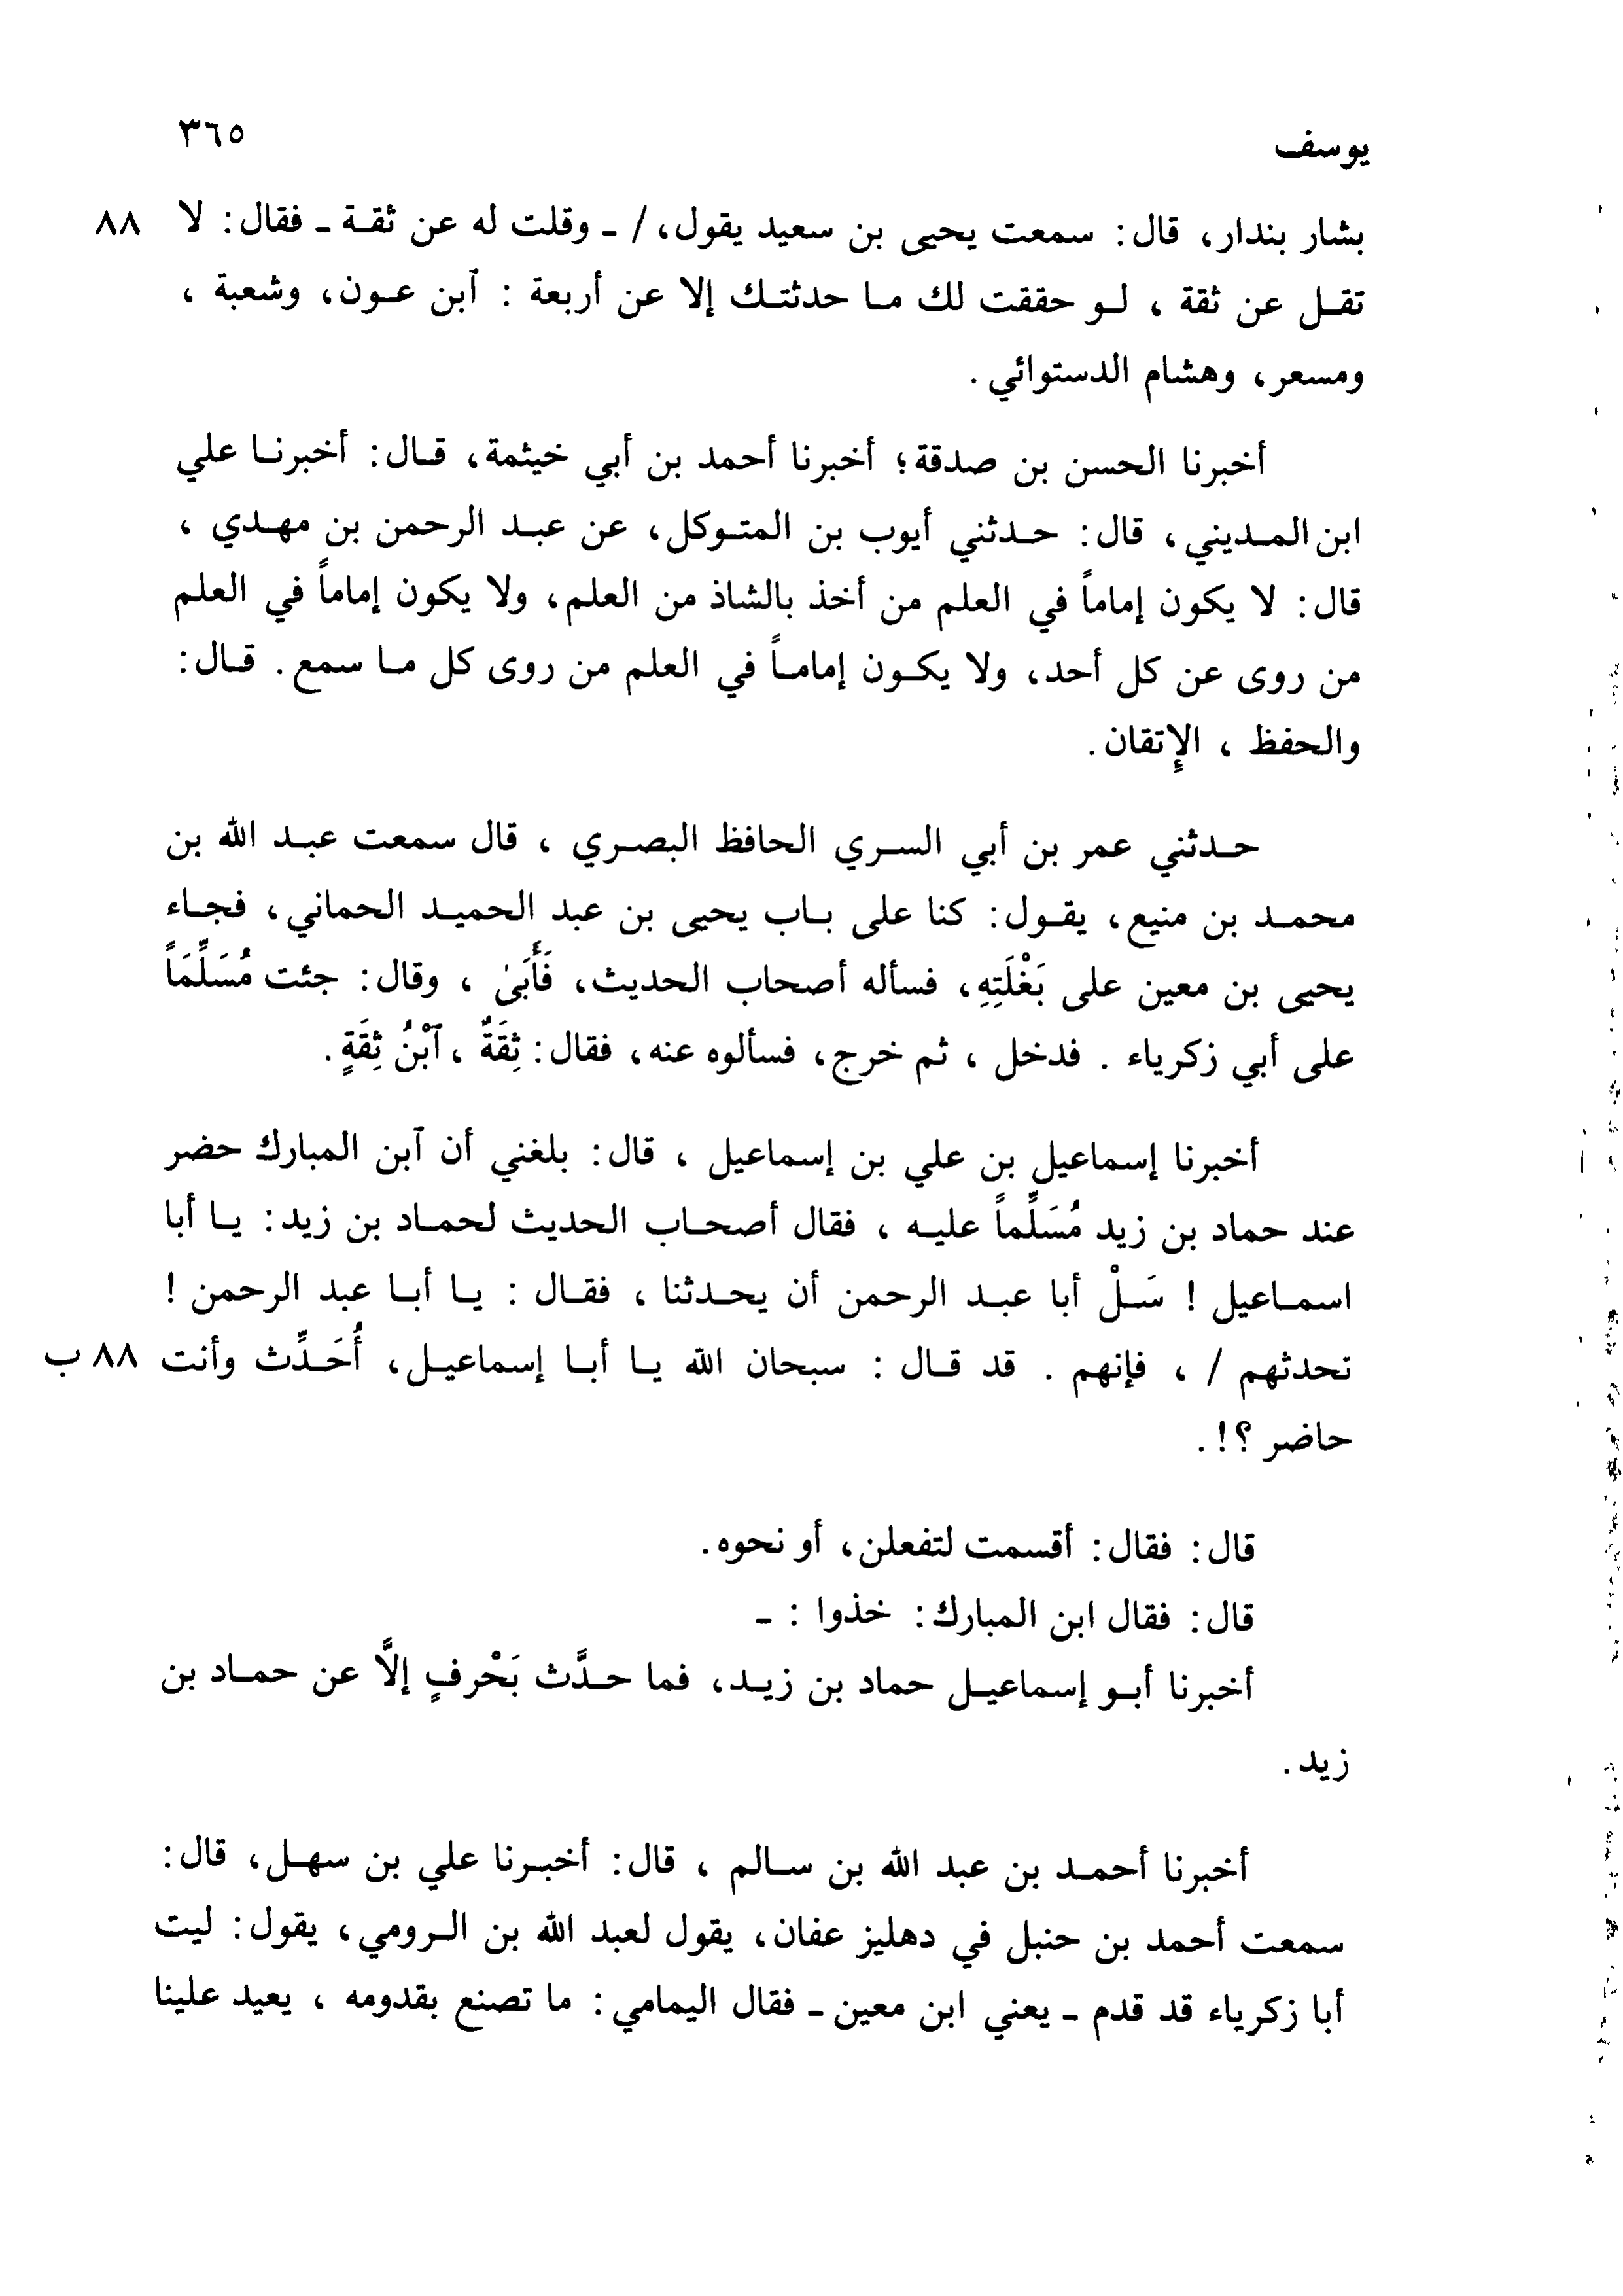 يوسف ٣٦٥
بشار بندار، قال: سمعت يحيى بن سعيد يقول، / ـ وقلت له عن ثقة ـ فقال: لا ٨٨
تقل عن ثقة ، لو حققت لك ما حدثتك إلا عن أربعة : آبن عون، وشعبة ،
ومسعر، وهشام الدستوائي .
أخبرنا الحسن بن صدقة؛ أخبرنا أحمد بن أبي خيثمة، قال: أخبرنا علي
ابن المديني، قال: حدثني أيوب بن المتوكل، عن عبد الرحمن بن مهدي ،
قال: لا يكون إماماً في العلم من أخذ بالشاذ من العلم، ولا يكون إماماً في العلم
من روى عن كل أحد، ولا يكون إماماً في العلم من روى كل ما سمع. قال:
والحفظ ، الإتقان.
حدثني عمر بن أبي السري الحافظ البصري ، قال سمعت عبد الله بن
محمد بن منيع، يقول: كنا على باب يحيى بن عبد الحميد الحماني، فجاء
يحيى بن معين على بَغْلَتِهِ، فسأله أصحاب الحديث، فَأَبَىٰ ، وقال: جئت مُسَلِّمَاً
على أبي زكرياء . فدخل ، ثم خرج، فسألوه عنه، فقال: ثِقَةٌ ، آبْنُ ثِقَةٍ.
أخبرنا إسماعيل بن علي بن إسماعيل ، قال: بلغني أن آبن المبارك حضر
عند حماد بن زيد مُسَلِّماً عليه ، فقال أصحاب الحديث لحماد بن زيد: يا أبا
اسماعيل ! سَلْ أبا عبد الرحمن أن يحدثنا ، فقال : يا أبا عبد الرحمن !
تحدثهم / ، فإنهم . قد قال : سبحان الله يا أبا إسماعيل، أُحَدِّث وأنت ٨٨ ب
حاضر ؟! .
قال: فقال: أقسمت لتفعلن، أو نحوه.
قال: فقال ابن المبارك: خذوا : ـ
أخبرنا أبو إسماعيل حماد بن زيد، فما حدَّث بَحْرفٍ إلاَّ عن حماد بن
زيد.
أخبرنا أحمد بن عبد الله بن سالم ، قال: أخبرنا علي بن سهل، قال:
سمعت أحمد بن حنبل في دهليز عفان، يقول لعبد الله بن الرومي، يقول: ليت
أبا زكرياء قد قدم ـ يعني ابن معين ـ فقال اليمامي: ما تصنع بقدومه ، يعيد علينا